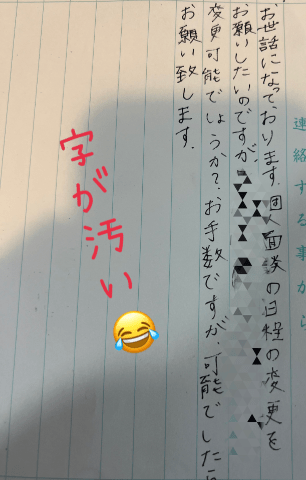 連絡する事から
お世話になっております。個人面談の日程の変更を
お願いしたいのですが、
変更可能でしょうか?お手数ですが、可能でしたら
お願い致します。
字が汚い